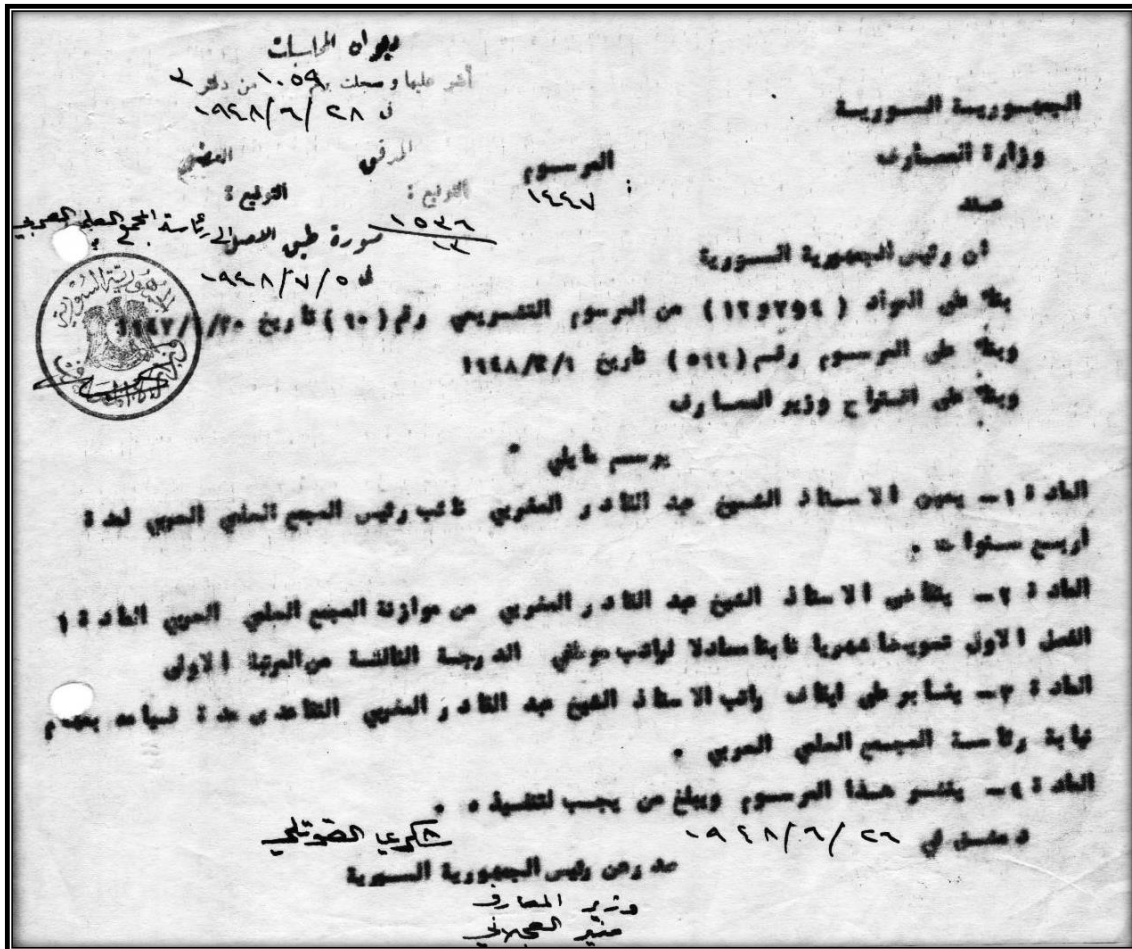 ديوان المحاسبات
أشر عليها وسجلت برقم ١٠٥٩ من دفتر ٢
في ٢٨/٦/١٩٤٨
المدقق العضو
التوقيع : التوقيع :
١٥٣٦
١٣
صورة طبق الاصل الى رئاسة المجمع العلمي العربي
في ٥/٧/١٩٤٨
الجمهورية السورية
وزارة المعارف
عدد
المرسوم :
١٤٤٧
أن رئيس الجمهورية السورية
بناء على المواد ( ٤و٩و١٢ ) من المرسوم التشريعي رقم (٩٠) تاريخ
وبناء على المرسوم رقم (٥٩٩) تاريخ ١٩٤٨/٣/١
وبناء على اقتراح وزير المعارف
يرسم مايلي
المادة ١ـ يعين الاستاذ الشيخ عبد القادر المغربي نائب رئيس المجمع العلمي العربي لمدة
اربع سنوات .
المادة ٢ـ يتقاضى الاستاذ الشيخ عبد القادر المغربي من موازنة المجمع العلمي العربي المادة ١
الفصل الاول تعويضا شهريا ثابتا معادلا لراتب موظفي الدرجة الثالثة من المرتبة الاولى
المادة ٣ـ يثابر على ايقاف راتب الاستاذ الشيخ عبد القادر المغربي التقاعدى مدة قيامه بمهام
نيابة رئاسة المجمع العلمي العربي .
المادة ٤ـ ينشر هذا المرسوم ويبلغ من يجب لتنفيذه .
دمشق في ٢٦/٦/١٩٤٨
شكري القوتلي
صدر عن رئيس الجمهورية السورية
وزير المعارف
منير العجلاني
الجمهورية السورية